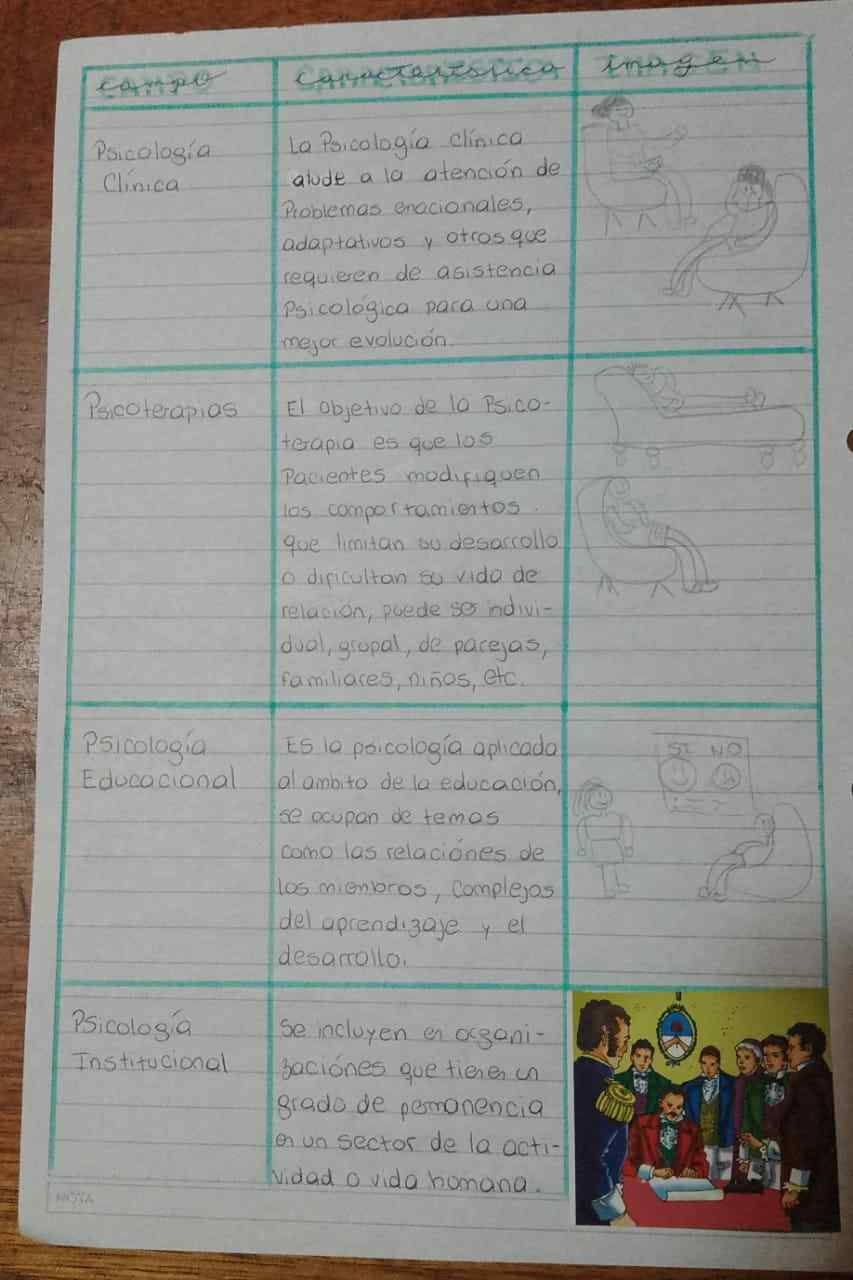 campo
característica
imagen
Psicología
Clínica
La Psicología Clínica
alude a la atención de
Problemas emocionales,
adaptativos y otros que
requieren de asistencia
Psicológica para una
mejor evolución.
Psicoterapias
El objetivo de la Psico-
terapia es que los
Pacientes modifiquen
los comportamientos
que limitan su desarrollo
o dificultan su vida de
relación, puede ser indivi-
dual, grupal, de parejas,
familiares, niños, etc.
Psicología
Educacional
Es la psicología aplicada
al ambito de la educación,
se ocupan de temas
como las relaciónes de
los miembros, complejos
del aprendizaje y el
desarrollo.
SI NO
Psicología
Institucional
Se incluyen en organi-
zaciónes que tienen un
grado de permanencia
en un sector de la acti-
vidad o vida humana.
NOTA